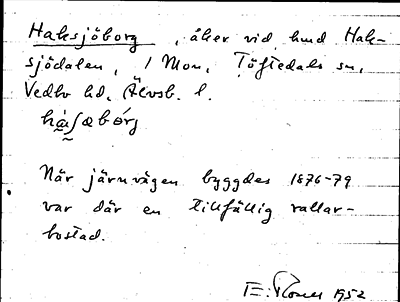 Haksjöborg, åker vid hmd Hak-
sjödalen, 1 Mon, Töftedals sn,
Vedbo hd, Älvsb. l.
När järnvägen byggdes 1876-79
var där en tillfällig rallar-
bostad.
1952